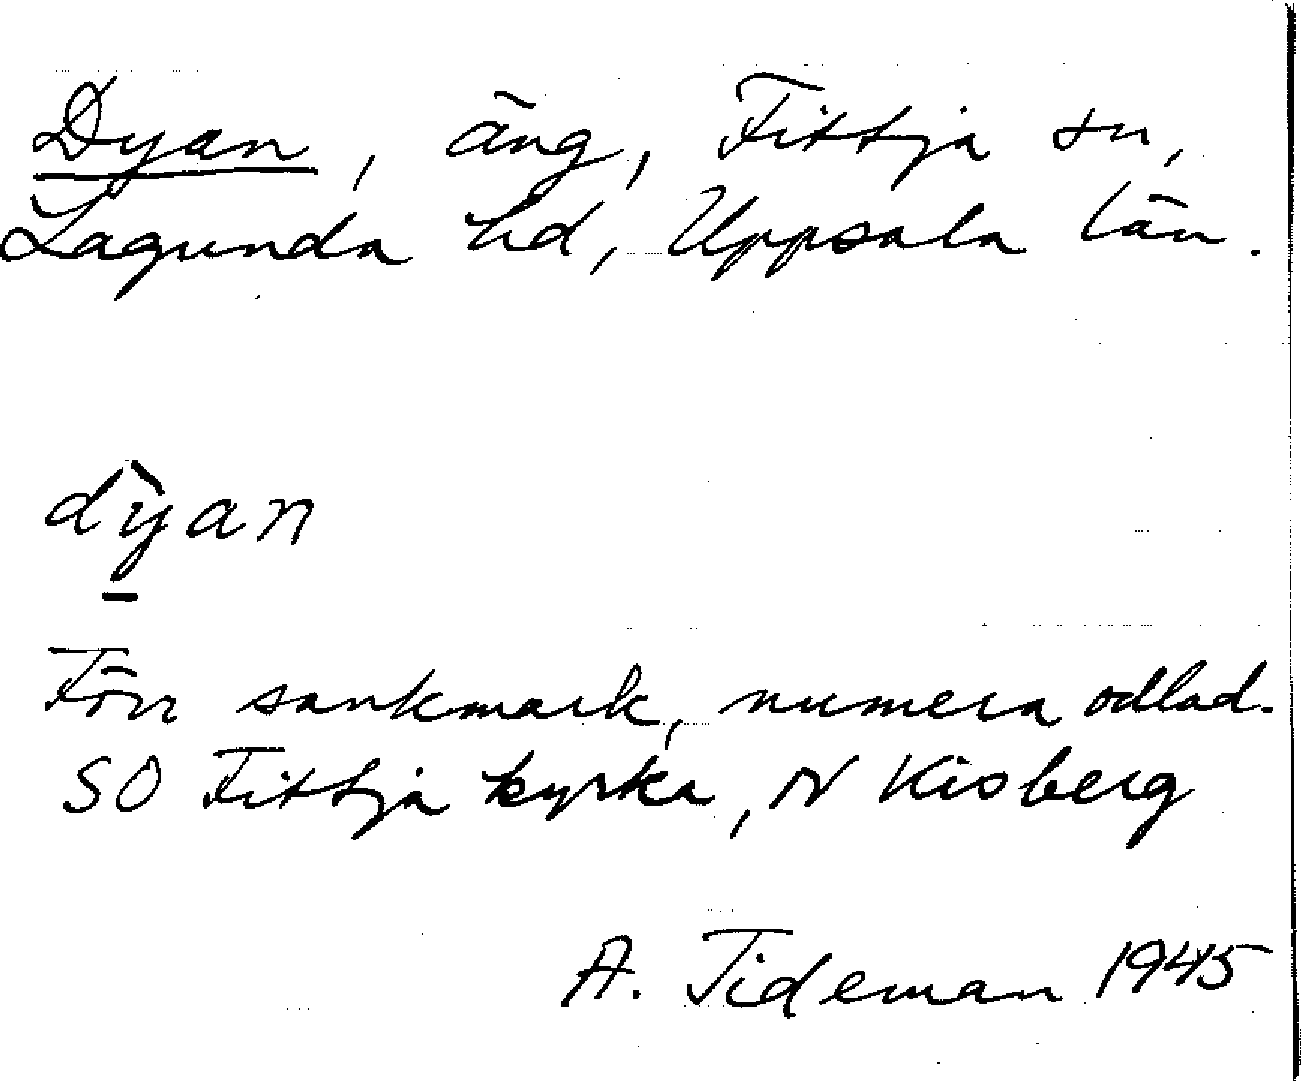 Dyan, äng, Fittja sn,
Lagunda hd, Uppsala län.
dỳ̱an
Förr sankmark, numera odlad.
SO Fittja kyrka, N Kisberg
A. Tideman 1945